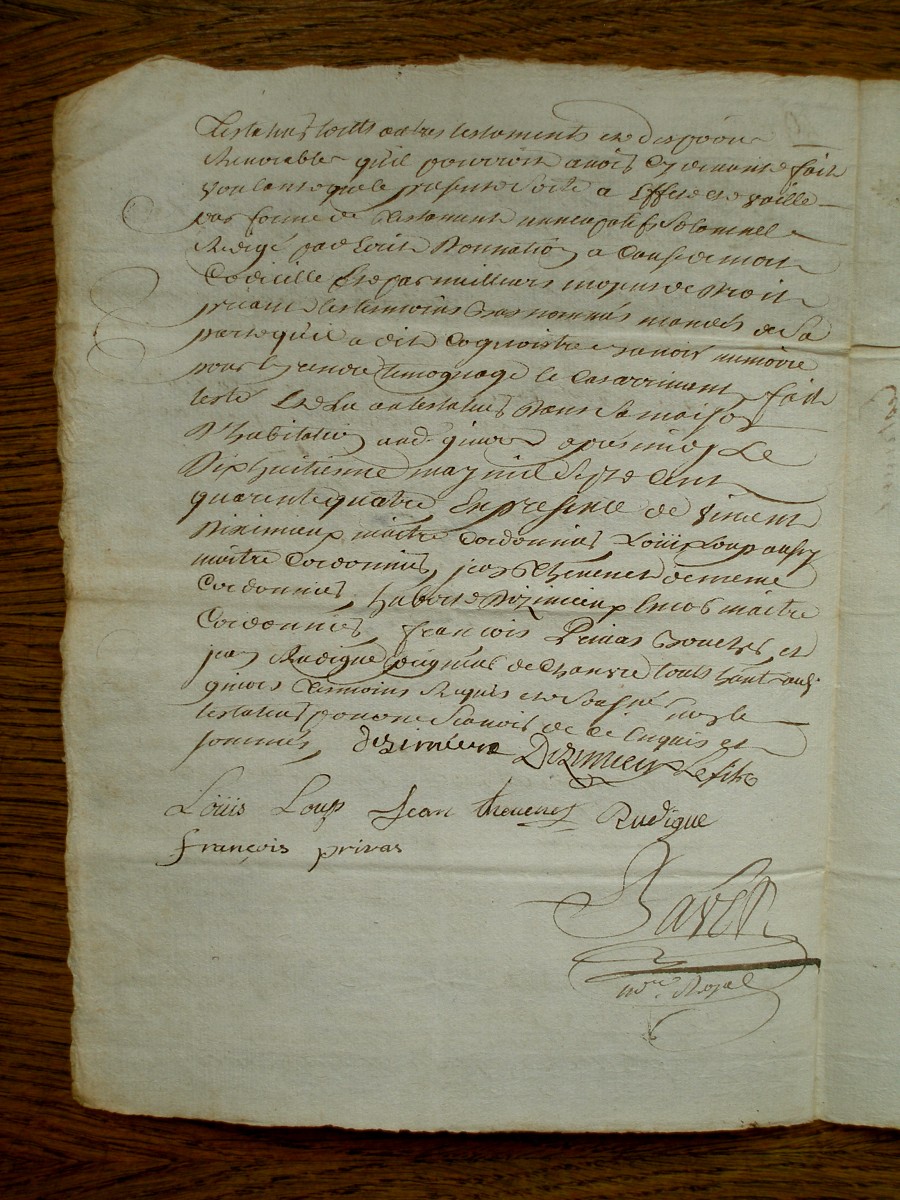 testateur touts autres testaments et dispõõns
révocables qu'il pourroit avoir cy devant fait
voulant que le présent sorte a effet et vaille
par forme de testament nuncupatif solemnel
rédigé par écrit donnation a cause de mort
codicille et par meilleurs moyens de droit
priant les temoins bas nommés mandés de sa
part et qu'il a dit cognoistre d'en avoir memoire
pour en rendre temoignage le cas arrivant fait
leu au testateur dans sa maison
d'habitation aud. givors apres midy le
dix huitieme may mil sept cent
quarente quatre en presence de vincent
maitre cordonnier Loüis Loup aussy
maitre cordonnier, jean Thevenet de meme
cordonnier, hubert Dizimieux encor maitre
cordonnier, françois Privas boucher et
jean Rudigue peigneur de chanvre touts habt. aud.
givors temoins requis et soussigné non le
testateur pour ne sçavoir de ce enquis et
sommés, dezimieux Dizimieux Le fils
Loüis Loup Jean thevenet Rudigue
françois privas
nore. Royal